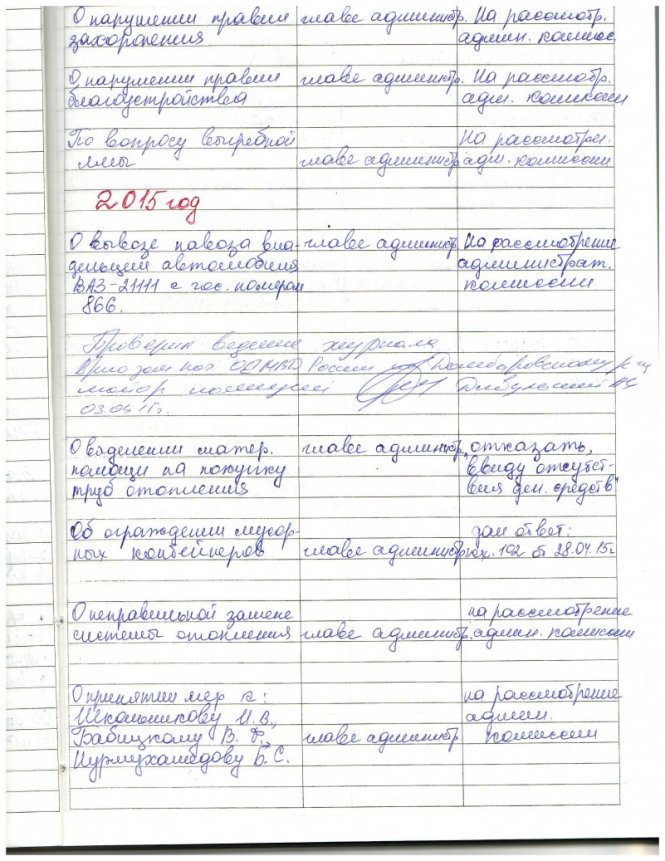 О нарушении правил главе администр. На рассмотр.
захоронения админ. комисс
О нарушении правил главе администр. На рассмотр.
благоустройства адм. комиссии
По вопросу выгребной На рассмотрен.
ямы главе администр. адм. комиссии
2015 год
О вывозе навоза вла- главе администр. На рассмотрение
дельцем автомобиля администрат.
ВАЗ-21111 с гос. номером комиссии
866.
Проверил ведение журнала
ОМВД России по Домбаровскому р-ну
майор полиции
03.04.15г.
О выделении матер. главе администр. "отказать,
помощи на покупку ввиду отсутст-
труб отопления вия ден. средств"
Об ограждении мусор- дан ответ:
ных контейнеров главе администр. исх. 192 от 28.04.15г.
О неправильной замене на рассмотрение
системы отопления главе администр. админ. комиссии
О принятии мер к: на рассмотрение
Школьникову И.В., админ.
Бабицкому В. Ф., главе администр. комиссии
Нурмухамедову Б. С.